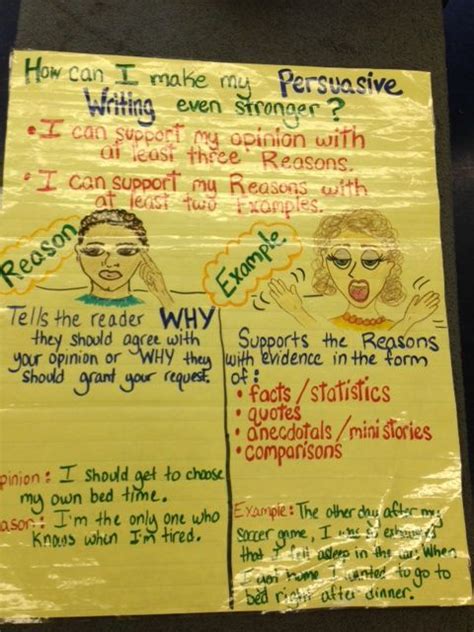 How can I make my Persuasive
Writing even stronger?
• I can support my opinion with
at least three Reasons.
• I can support my Reasons with
at least two Examples.
Reason
Tells the reader WHY
they should agree with
your opinion or WHY they
should grant your request.
pinion: I should get to choose
my own bed time.
ason: I'm the only one who
knows when I'm tired.
Example
Supports the Reasons
with evidence in the form
of:
• facts/statistics
• quotes
• anecdotals/mini stories
• comparisons
Example: The other day after my
soccer game, I was so exhausted
that I fell asleep in the car. When
I got home I wanted to go to
bed right after dinner.